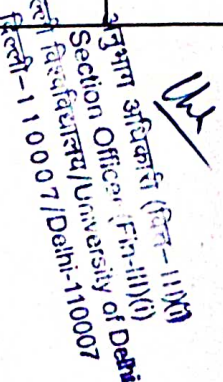 अनुभाग अधिकारी (वित्त-III)(i)
Section Officer (Fin-III)(i)
दिल्ली विश्वविद्यालय/University of Delhi
दिल्ली-110007/Delhi-110007